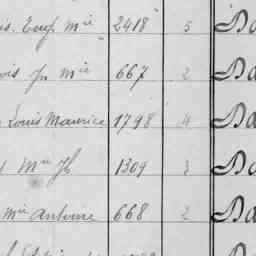 is. Eug. Mie 2418 5 Da
ois Jn Mie 667 2 Da
Louis Maurice 1798 4 Da
Mie Jh 1309 3 Da
Mie Antoine 668 2 Da